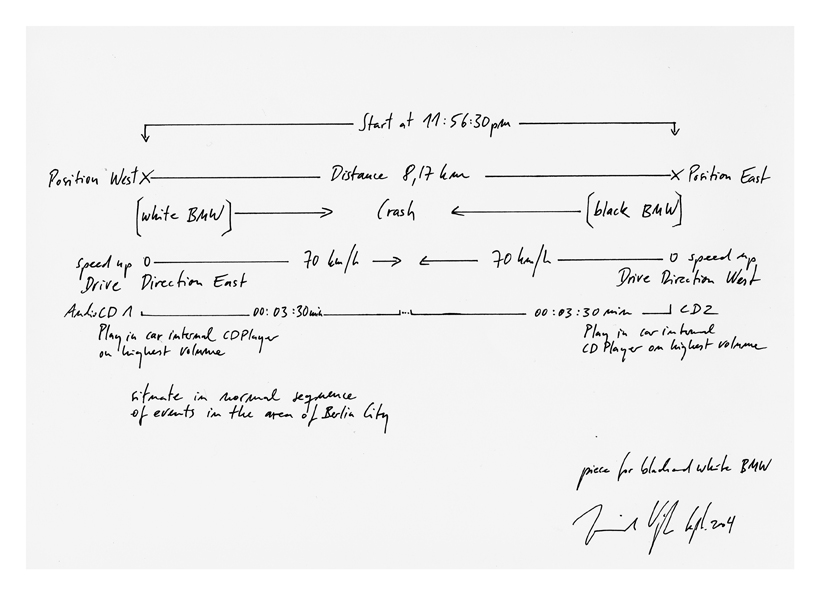 Start at 11:56:30pm
Position West X Distance 8,17 km X Position East
[white BMW] Crash [black BMW]
speed up 0 70 km/h 70 km/h 0 speed up
Drive Direction East Drive Direction West
Audio CD 1 00:03:30min ... 00:03:30 min CD2
Play in car internal CDPlayer Play in car internal
on highest volume CD Player on highest volume
situate in normal sequence
of events in the area of Berlin City
piece for black and white BMW